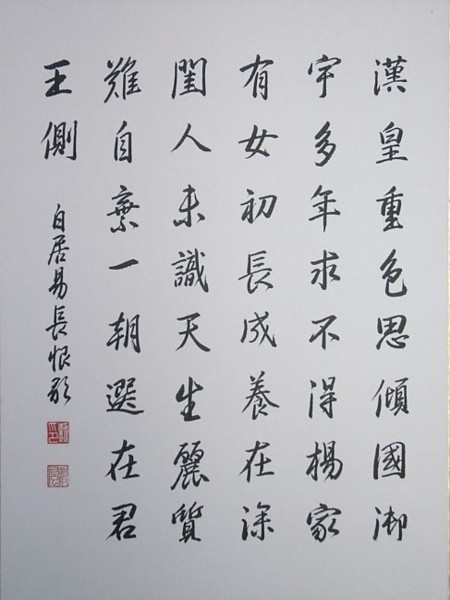 漢皇重色思傾國御
宇多年求不得楊家
有女初長成養在深
閨人未識天生麗質
難自棄一朝選在君
王側
白居易長恨歌